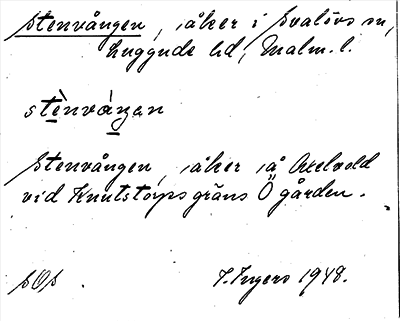 Stenvången, åker i Svalövs sn,
Luggude hd, Malm. l.
stènváŋan
Stenvången, åker å Axelvold
vid Knutstorps gräns Ö gården.
SOS J. Ingers 1948.